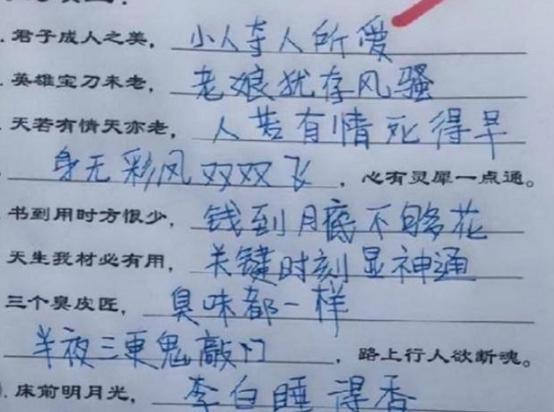 君子成人之美，小人夺人所爱
英雄宝刀未老，老娘犹存风骚
天若有情天亦老，人若有情死得早
身无彩凤双双飞，心有灵犀一点通。
书到用时方恨少，钱到月底不够花
天生我材必有用，关键时刻显神通
三个臭皮匠，臭味都一样
半夜三更鬼敲门，路上行人欲断魂。
床前明月光，李白睡得香